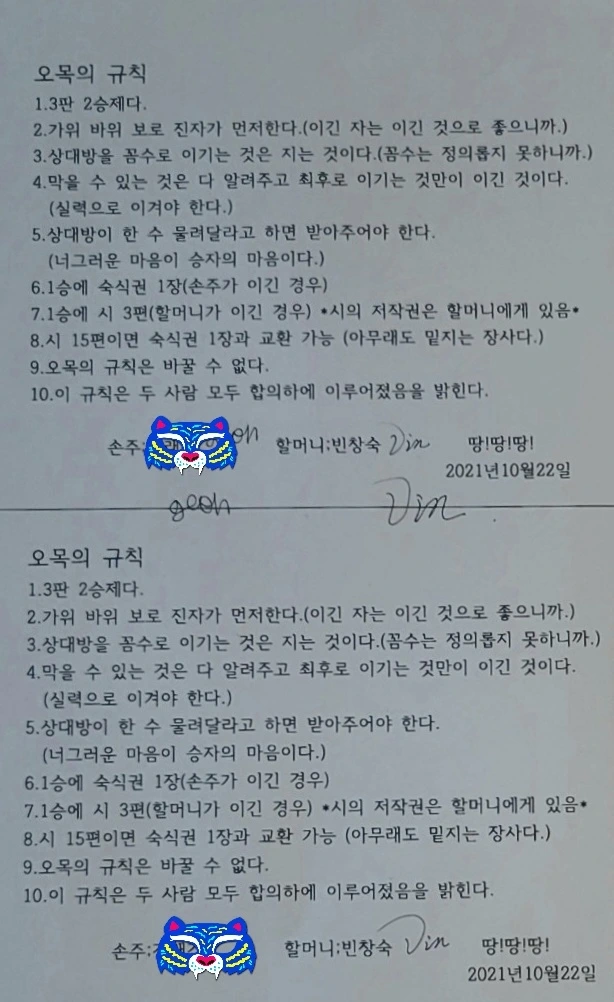 오목의 규칙
1.3판 2승제다.
2.가위 바위 보로 진자가 먼저한다.(이긴 자는 이긴 것으로 좋으니까.)
3.상대방을 꼼수로 이기는 것은 지는 것이다.(꼼수는 정의롭지 못하니까.)
4.막을 수 있는 것은 다 알려주고 최후로 이기는 것만이 이긴 것이다.
(실력으로 이겨야 한다.)
5.상대방이 한 수 물려달라고 하면 받아주어야 한다.
(너그러운 마음이 승자의 마음이다.)
6.1승에 숙식권 1장(손주가 이긴 경우)
7.1승에 시 3편(할머니가 이긴 경우) *시의 저작권은 할머니에게 있음*
8.시 15편이면 숙식권 1장과 교환 가능 (아무래도 밑지는 장사다.)
9.오목의 규칙은 바꿀 수 없다.
10.이 규칙은 두 사람 모두 합의하에 이루어졌음을 밝힌다.
손주: 할머니;빈창숙 Vin 땅!땅!땅!
2021년10월22일
geon Vin
오목의 규칙
1.3판 2승제다.
2.가위 바위 보로 진자가 먼저한다.(이긴 자는 이긴 것으로 좋으니까.)
3.상대방을 꼼수로 이기는 것은 지는 것이다.(꼼수는 정의롭지 못하니까.)
4.막을 수 있는 것은 다 알려주고 최후로 이기는 것만이 이긴 것이다.
(실력으로 이겨야 한다.)
5.상대방이 한 수 물려달라고 하면 받아주어야 한다.
(너그러운 마음이 승자의 마음이다.)
6.1승에 숙식권 1장(손주가 이긴 경우)
7.1승에 시 3편(할머니가 이긴 경우) *시의 저작권은 할머니에게 있음*
8.시 15편이면 숙식권 1장과 교환 가능 (아무래도 밑지는 장사다.)
9.오목의 규칙은 바꿀 수 없다.
10.이 규칙은 두 사람 모두 합의하에 이루어졌음을 밝힌다.
손주; 할머니;빈창숙 Vin 땅!땅!땅!
2021년10월22일